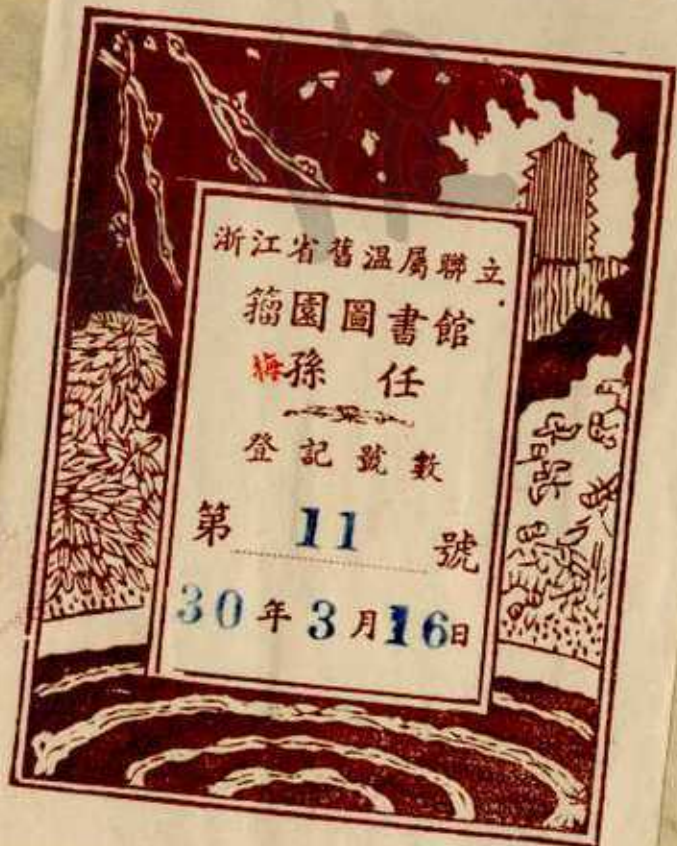 浙江省舊溫屬聯立
籀園圖書館
梅孫 任
登記號數
第 11 號
30年3月16日